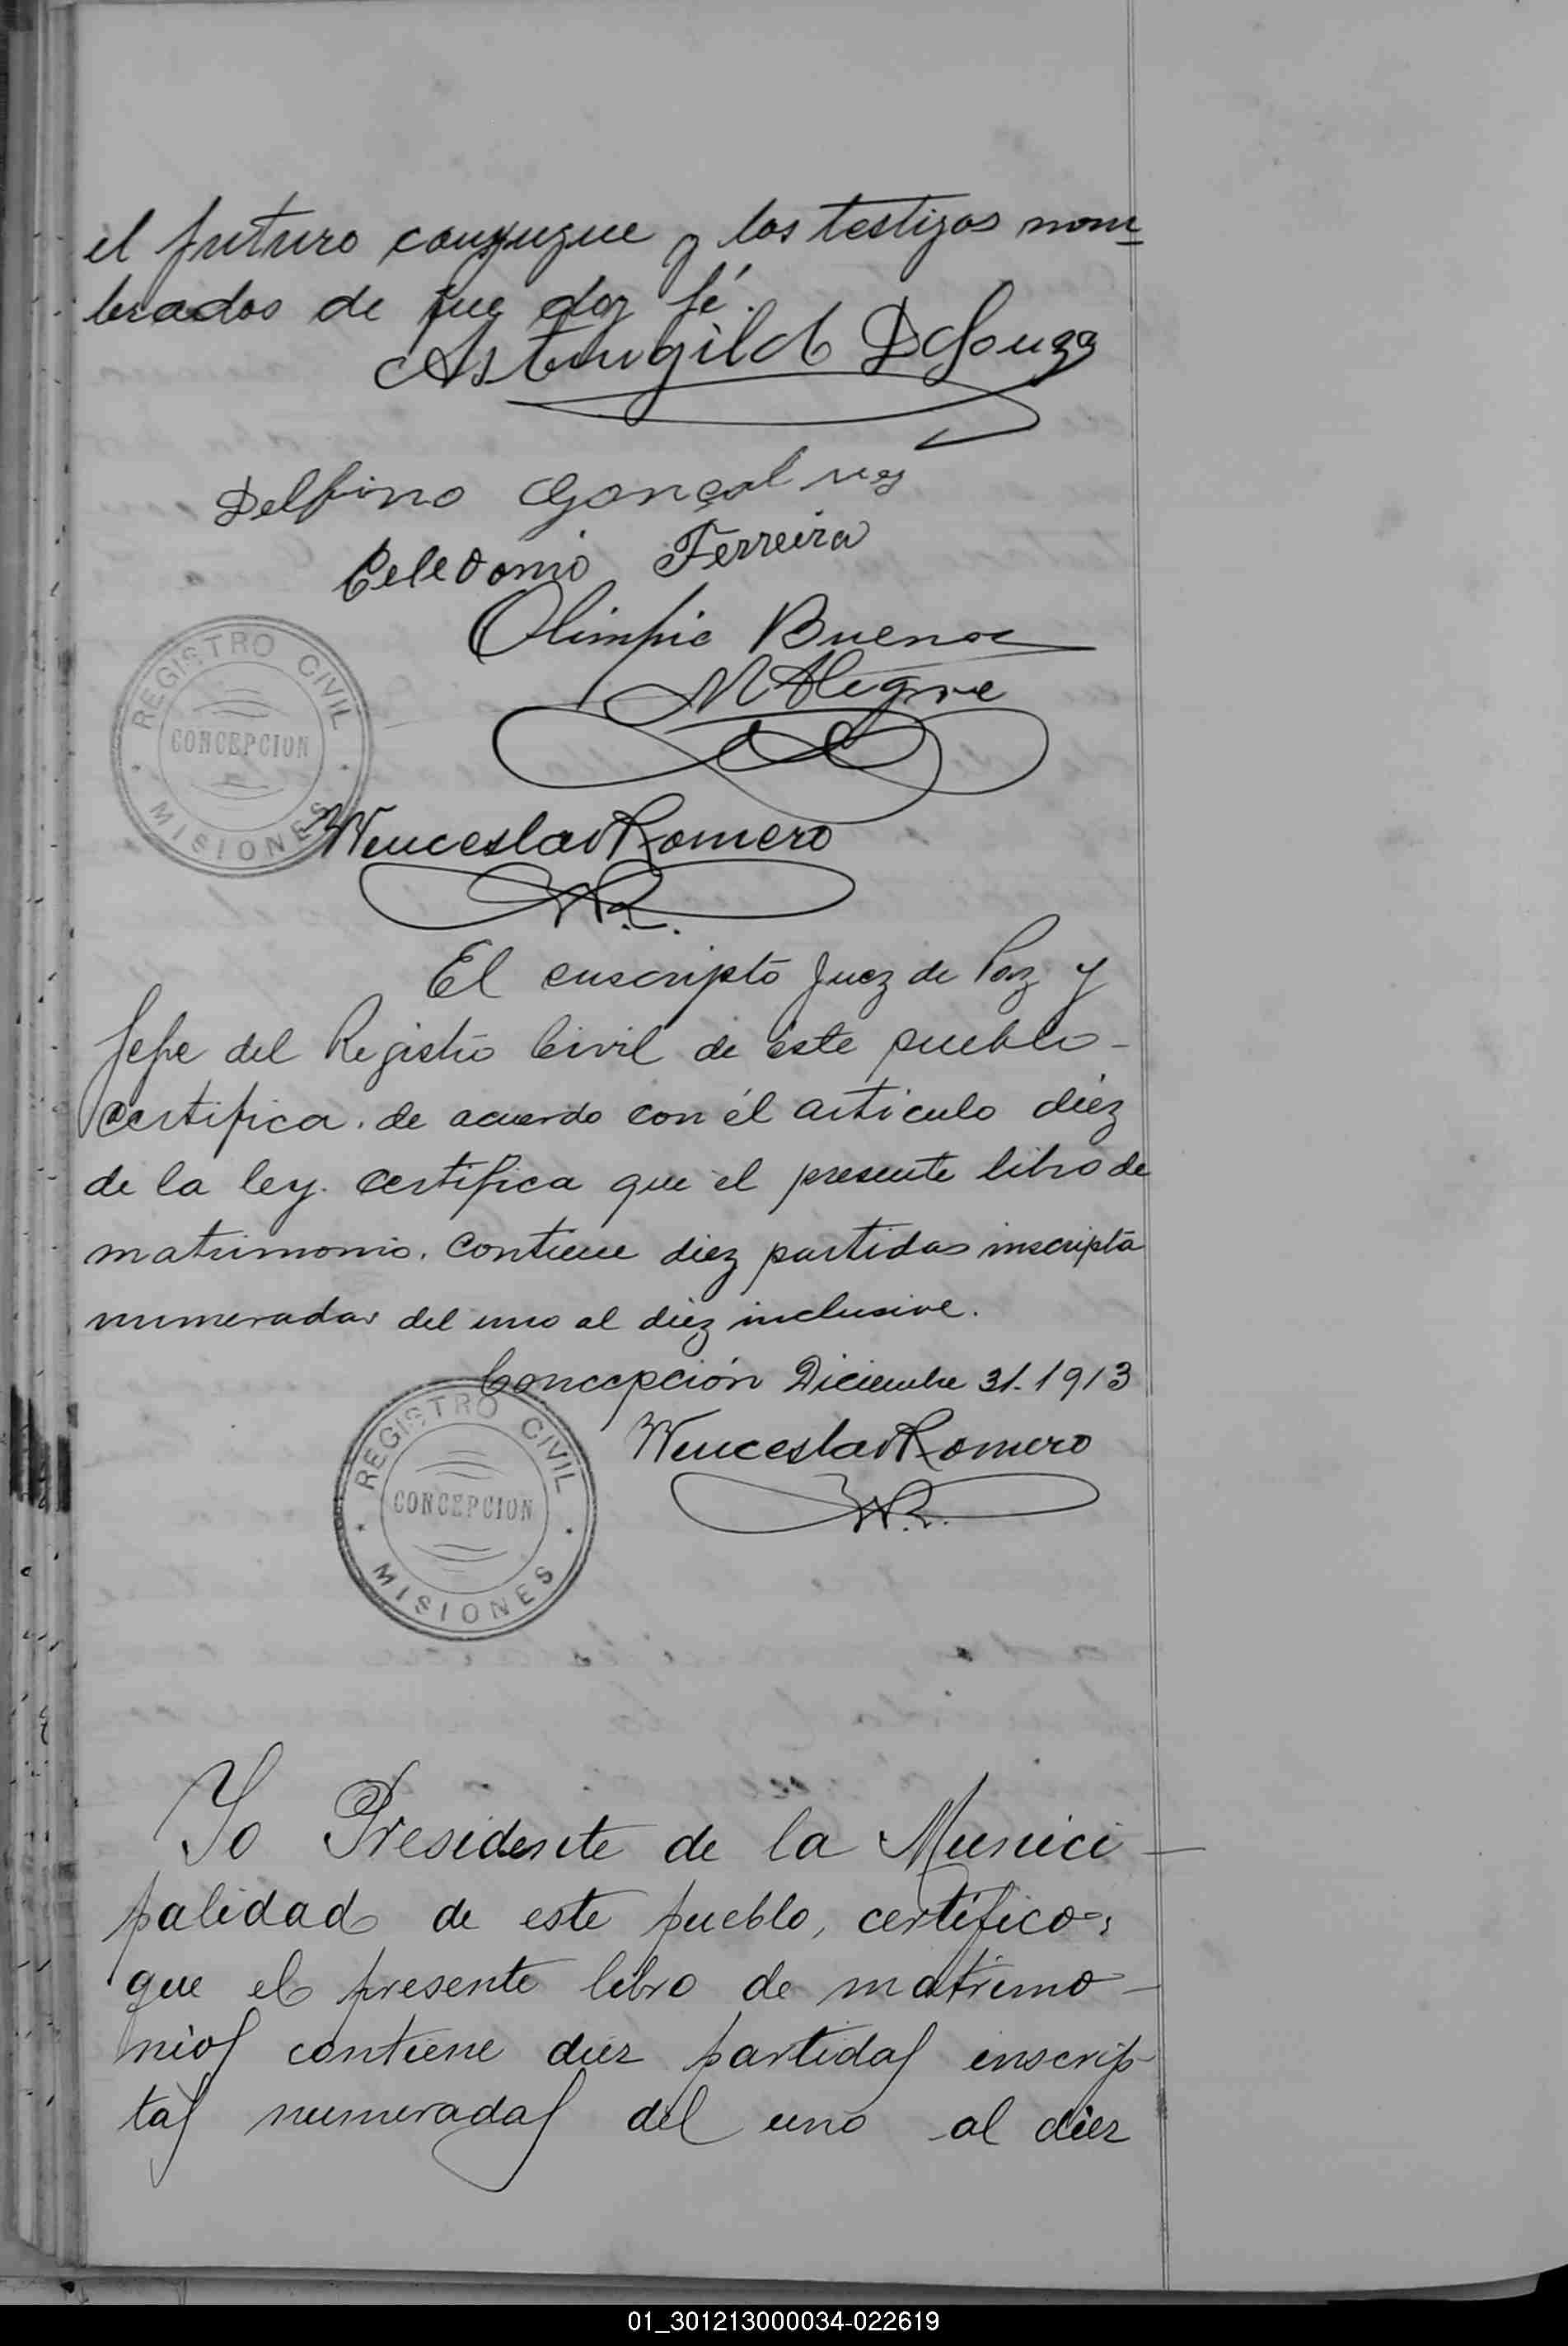 el futuro conyugue y los testigos nom=
brados de que doy fé.
D Souza
Delfino Gonçalves
Celedonio Ferreira
Olimpio Bueno
M Alegre
REGISTRO CIVIL
CONCEPCION
MISIONES
Wenceslao Romero
W.R.
El suscripto Juez de Paz y
Jefe del Registro Civil de este pueblo-
certifica. de acuerdo con él articulo diéz
de la ley. certifica que el presente libro de
matrimonio. contiene diez partidas inscripta
numeradas del uno al diez inclusive.
Concepción Diciembre 31. 1913
Wenceslao Romero
W.R.
REGISTRO CIVIL
CONCEPCION
MISIONES
Yo Presidente de la Munici-
palidad de este pueblo, certifico:
que el presente libro de matrimo-
nios contiene diez partidas inscrip-
tas numeradas del uno al diez
01_301213000034-022619